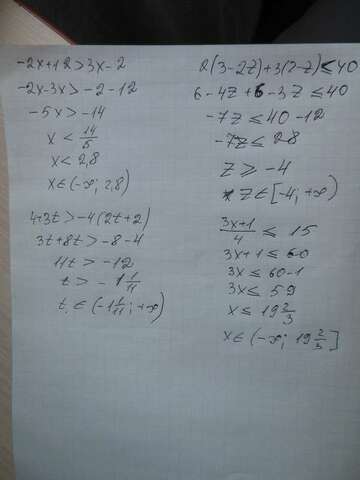 -2x+12>3x-2
-2x-3x>-2-12
-5x>-14
x < 14/5
x < 2,8
x ∈ (-∞; 2,8)
4+3t>-4(2t+2)
3t+8t>-8-4
11t > -12
t > -1 1/11
t ∈ (-1 1/11; +∞)
2(3-2z)+3(2-z)≤40
6-4z+6-3z≤40
-7z≤40-12
-7z≤28
z ≥ -4
z∈[-4; +∞)
3x+1/4 ≤ 15
3x+1≤60
3x≤60-1
3x≤59
x≤19 2/3
x∈(-∞; 19 2/3]